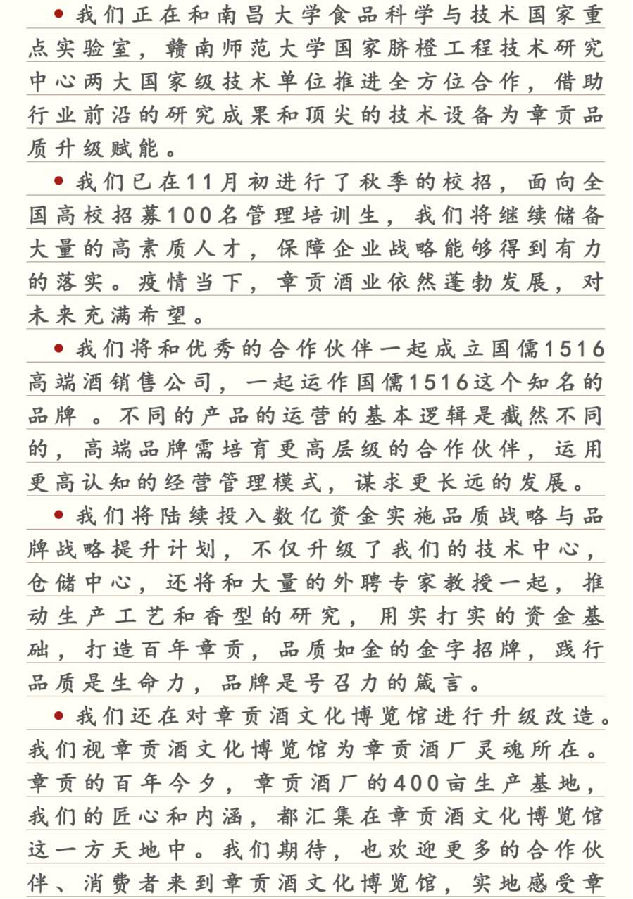 • 我们正在和南昌大学食品科学与技术国家重
点实验室，赣南师范大学国家脐橙工程技术研究
中心两大国家级技术单位推进全方位合作，借助
行业前沿的研究成果和顶尖的技术设备为章贡品
质升级赋能。
• 我们已在11月初进行了秋季的校招，面向全
国高校招募100名管理培训生，我们将继续储备
大量的高素质人才，保障企业战略能够得到有力
的落实。疫情当下，章贡酒业依然蓬勃发展，对
未来充满希望。
• 我们将和优秀的合作伙伴一起成立国儒1516
高端酒销售公司，一起运作国儒1516这个知名的
品牌 。不同的产品的运营的基本逻辑是截然不同
的，高端品牌需培育更高层级的合作伙伴，运用
更高认知的经营管理模式，谋求更长远的发展。
• 我们将陆续投入数亿资金实施品质战略与品
牌战略提升计划，不仅升级了我们的技术中心，
仓储中心，还将和大量的外聘专家教授一起，推
动生产工艺和香型的研究，用实打实的资金基
础，打造百年章贡，品质如金的金字招牌，践行
品质是生命力，品牌是号召力的箴言。
• 我们还在对章贡酒文化博览馆进行升级改造。
我们视章贡酒文化博览馆为章贡酒厂灵魂所在。
章贡的百年今夕，章贡酒厂的400亩生产基地，
我们的匠心和内涵，都汇集在章贡酒文化博览馆
这一方天地中。我们期待，也欢迎更多的合作伙
伴、消费者来到章贡酒文化博览馆，实地感受章